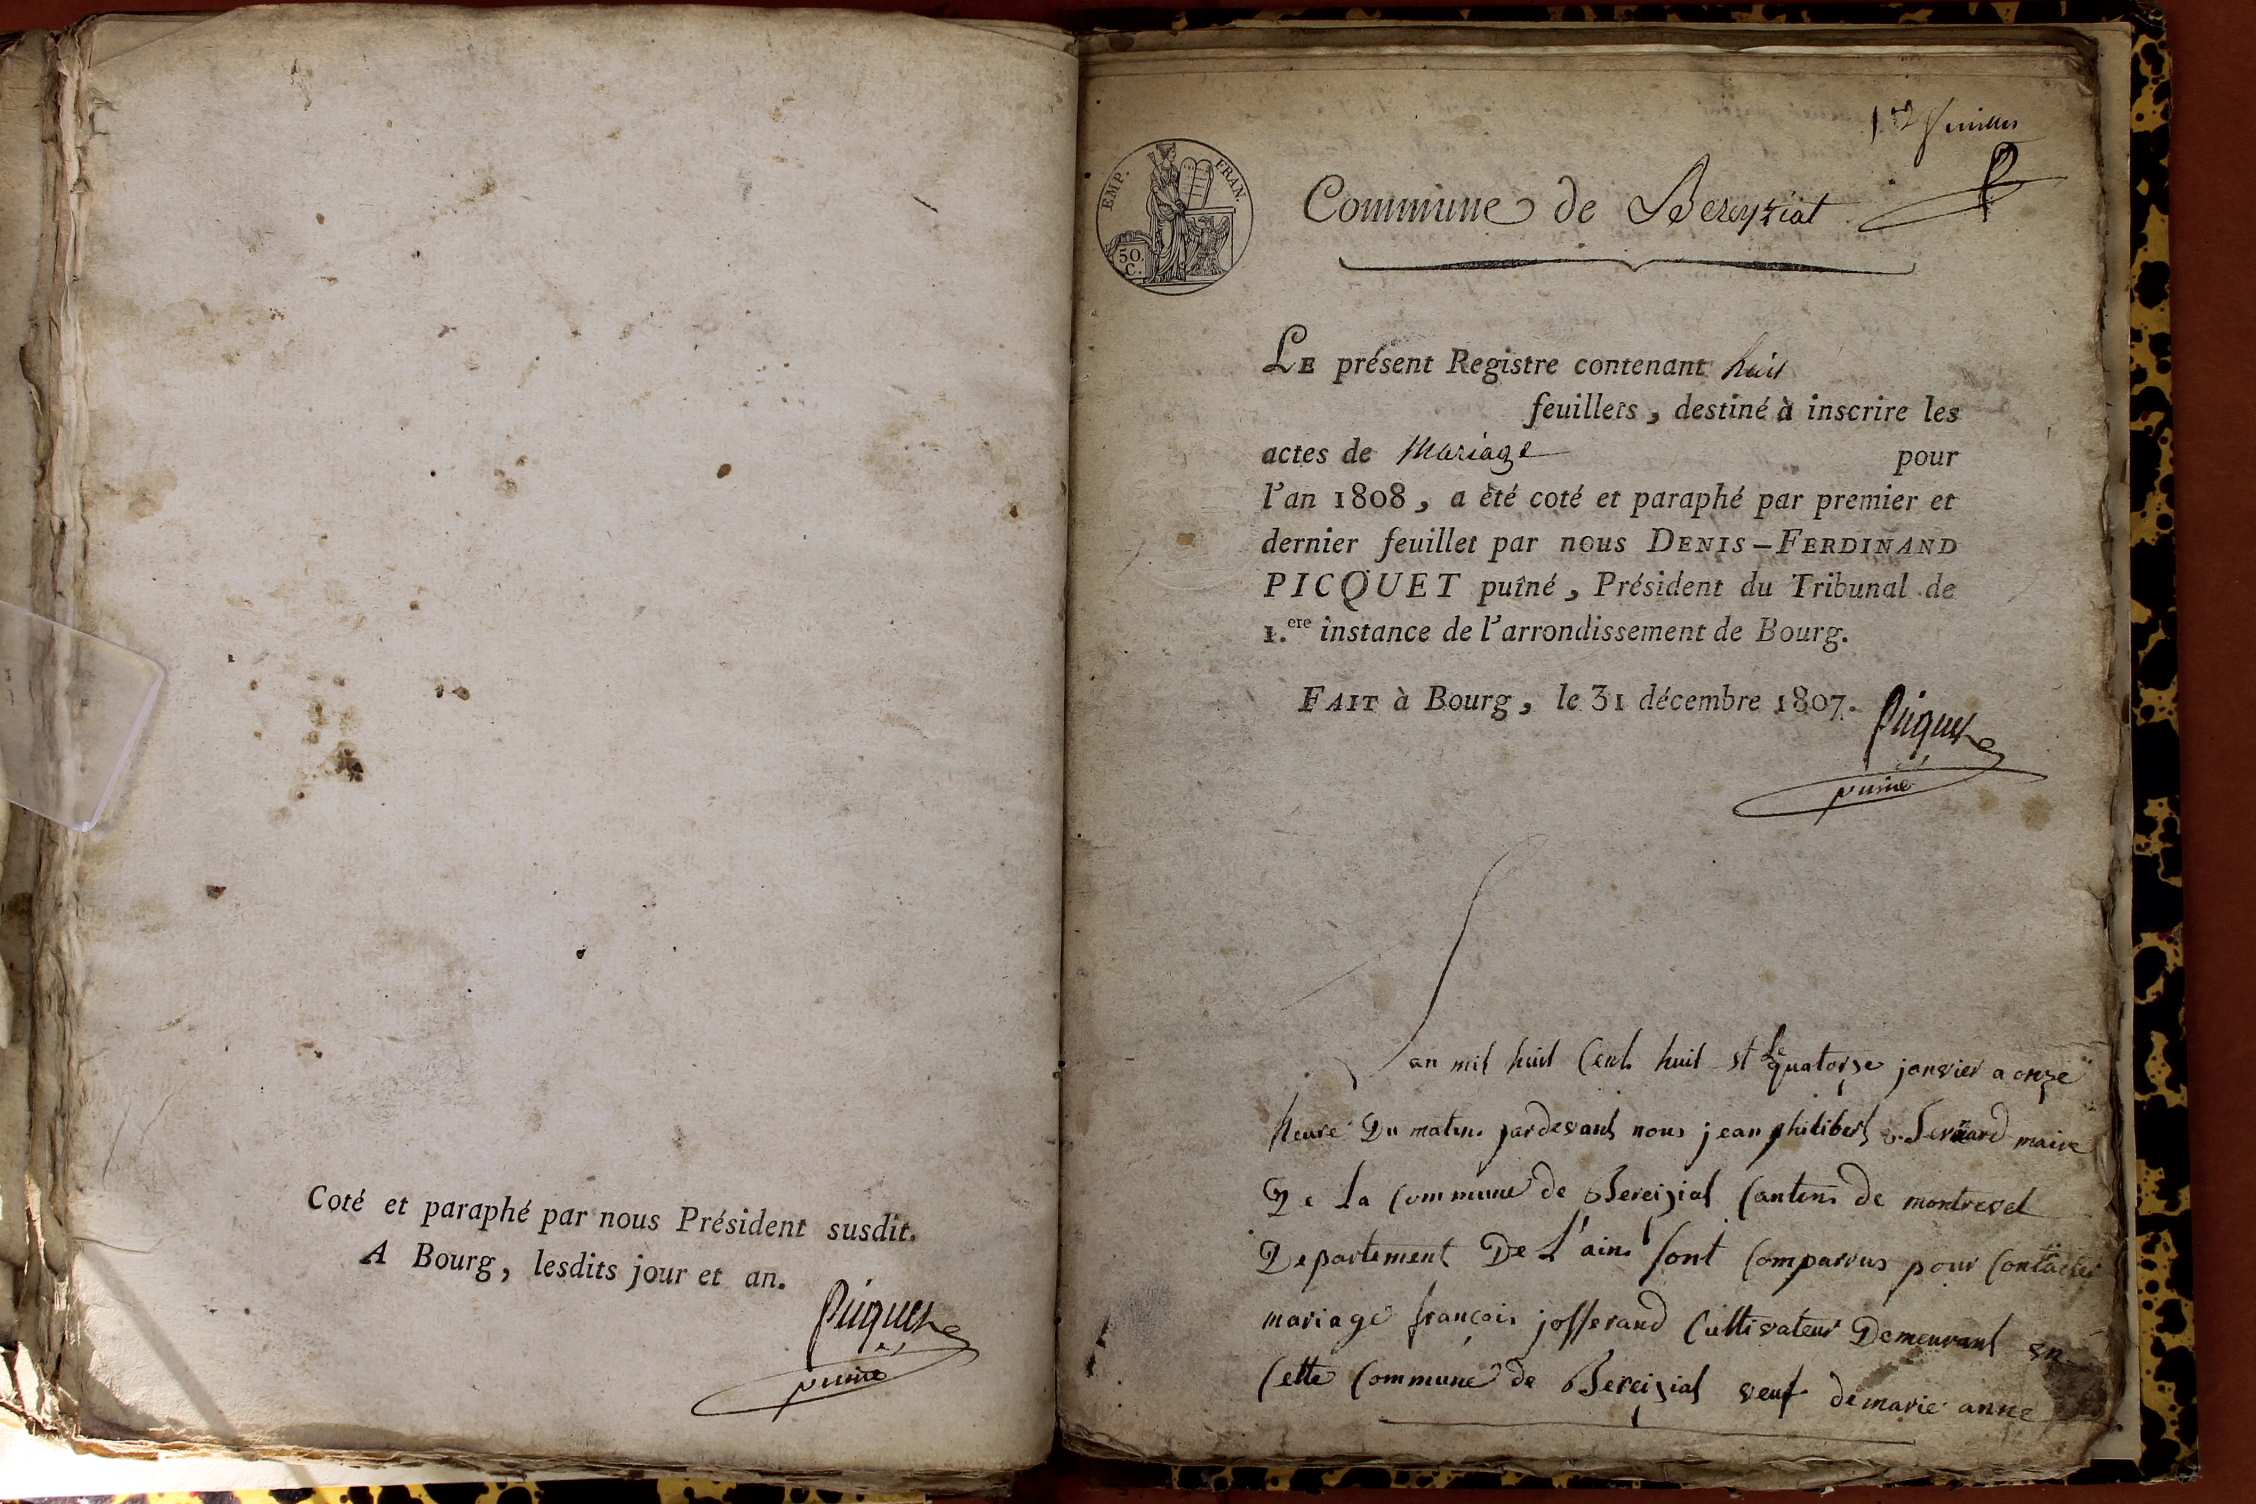 Coté et paraphé par nous Président susdit.
A Bourg, lesdits jour et an.
Picquet
puiné
1er feuillet
EMP. FRAN.
50.
C.
Commune de Bereyziat
LE présent Registre contenant huit
feuillets, destiné à inscrire les
actes de Mariage pour
l'an 1808, a été coté et paraphé par premier et
dernier feuillet par nous DENIS-FERDINAND
PICQUET puîné, Président du Tribunal de
1.ere instance de l'arrondissement de Bourg.
FAIT à Bourg, le 31 décembre 1807.
Picquet
puiné
L an mil huit Cent huit et Le quatorze janvier a onze
heure Du matin pardevant nous jean philibert maire
De La Commune de Bereiziat Canton de montrevel
Departement De L'ain sont Comparrus pour Contracter
mariage françois josserand Cultivateur Demeurant en
Cette Commune de Bereiziat veuf de marie anne